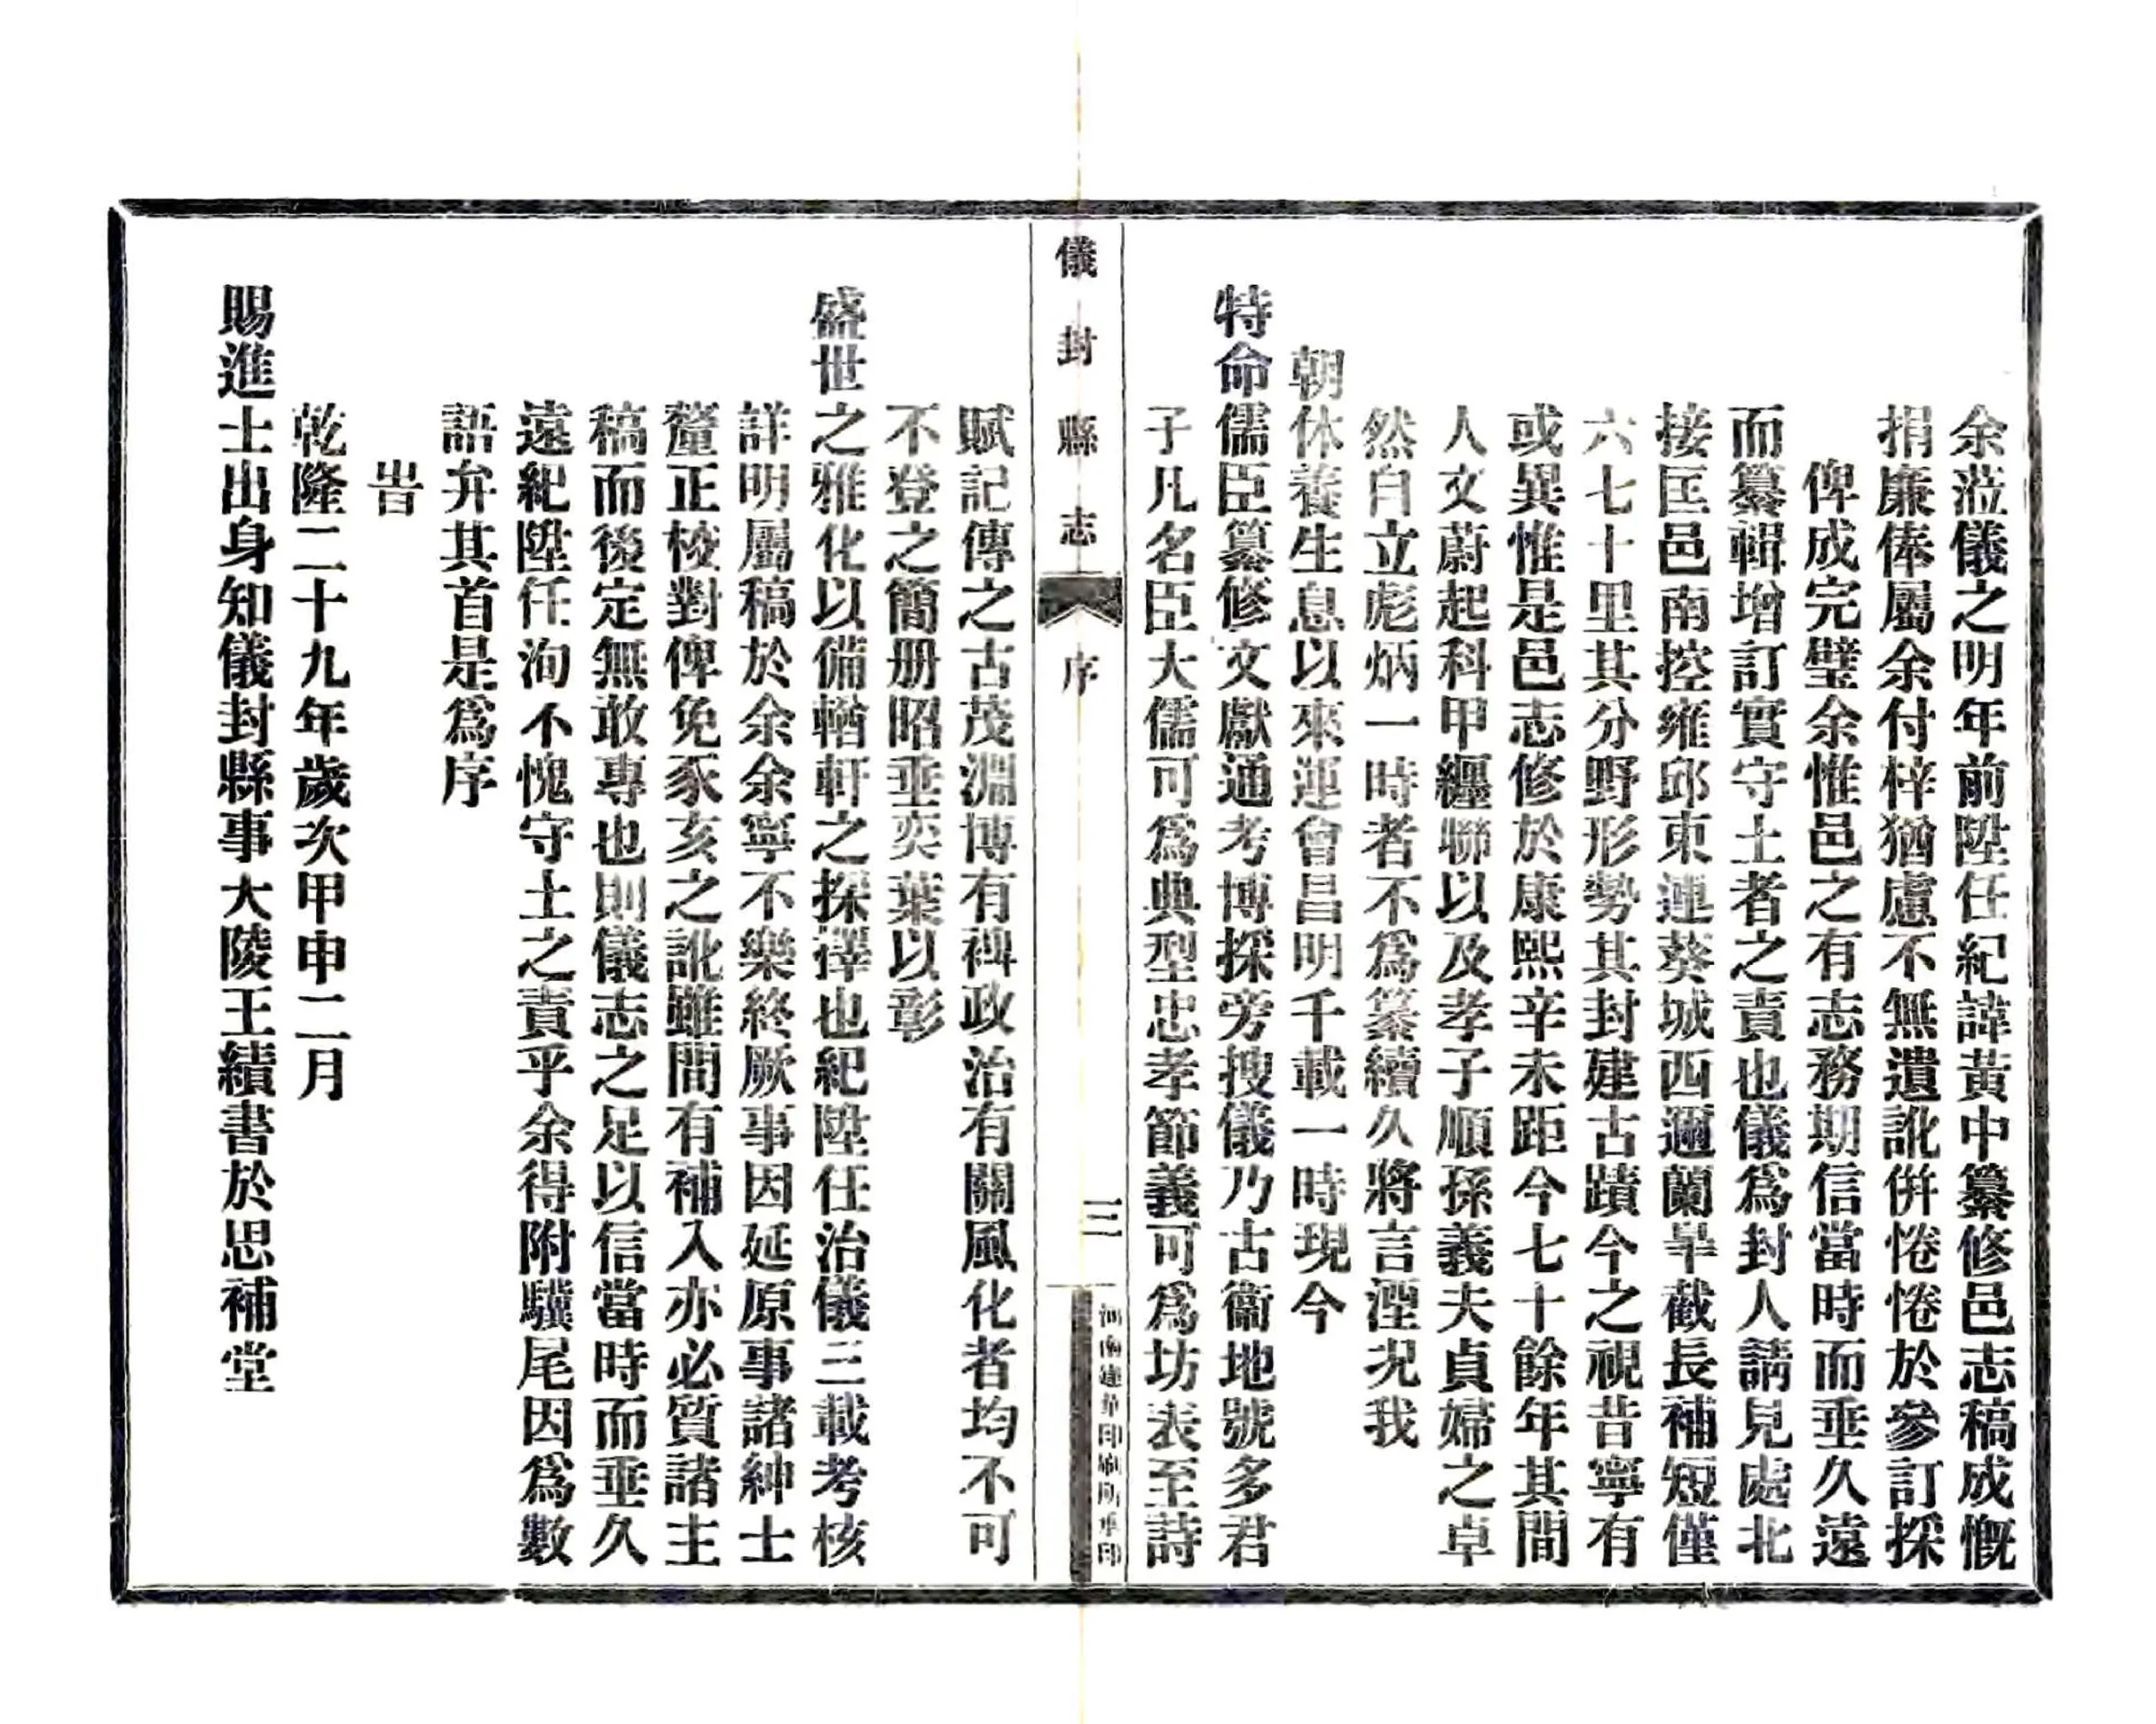 余蒞儀之明年前陞任紀諱黃中纂修邑志稿成慨
捐廉俸屬余付梓猶慮不無遺訛併惓惓於參訂採
俾成完璧余惟邑之有志務期信當時而垂久遠
而纂輯增訂實守土者之責也儀爲封人請見處北
接匡邑南控雍邱東連葵城西邇蘭旱截長補短僅
六七十里其分野形勢其封建古蹟今之視昔寧有
或異惟是邑志修於康熙辛未距今七十餘年其間
人文蔚起科甲纒聯以及孝子順孫義夫貞婦之卓
然自立彪炳一時者不爲纂續久將言湮況我
朝休養生息以來運會昌明千載一時現今
特命儒臣纂修文獻通考博採旁搜儀乃古衞地號多君
子凡名臣大儒可爲典型忠孝節義可爲坊表至詩
儀封縣志
序
三
河南建華印刷所承印
賦記傳之古茂淵博有裨政治有關風化者均不可
不登之簡册昭垂奕葉以彰
盛世之雅化以備輶軒之採擇也紀陞任治儀三載考核
詳明屬稿於余余寧不樂終厥事因延原事諸紳士
釐正校對俾免豕亥之訛雖間有補入亦必質諸主
稿而後定無敢專也則儀志之足以信當時而垂久
遠紀陞任洵不愧守土之責乎余得附驥尾因爲數
語弁其首是爲序
旹
乾隆二十九年歲次甲申二月
賜進士出身知儀封縣事大陵王績書於思補堂